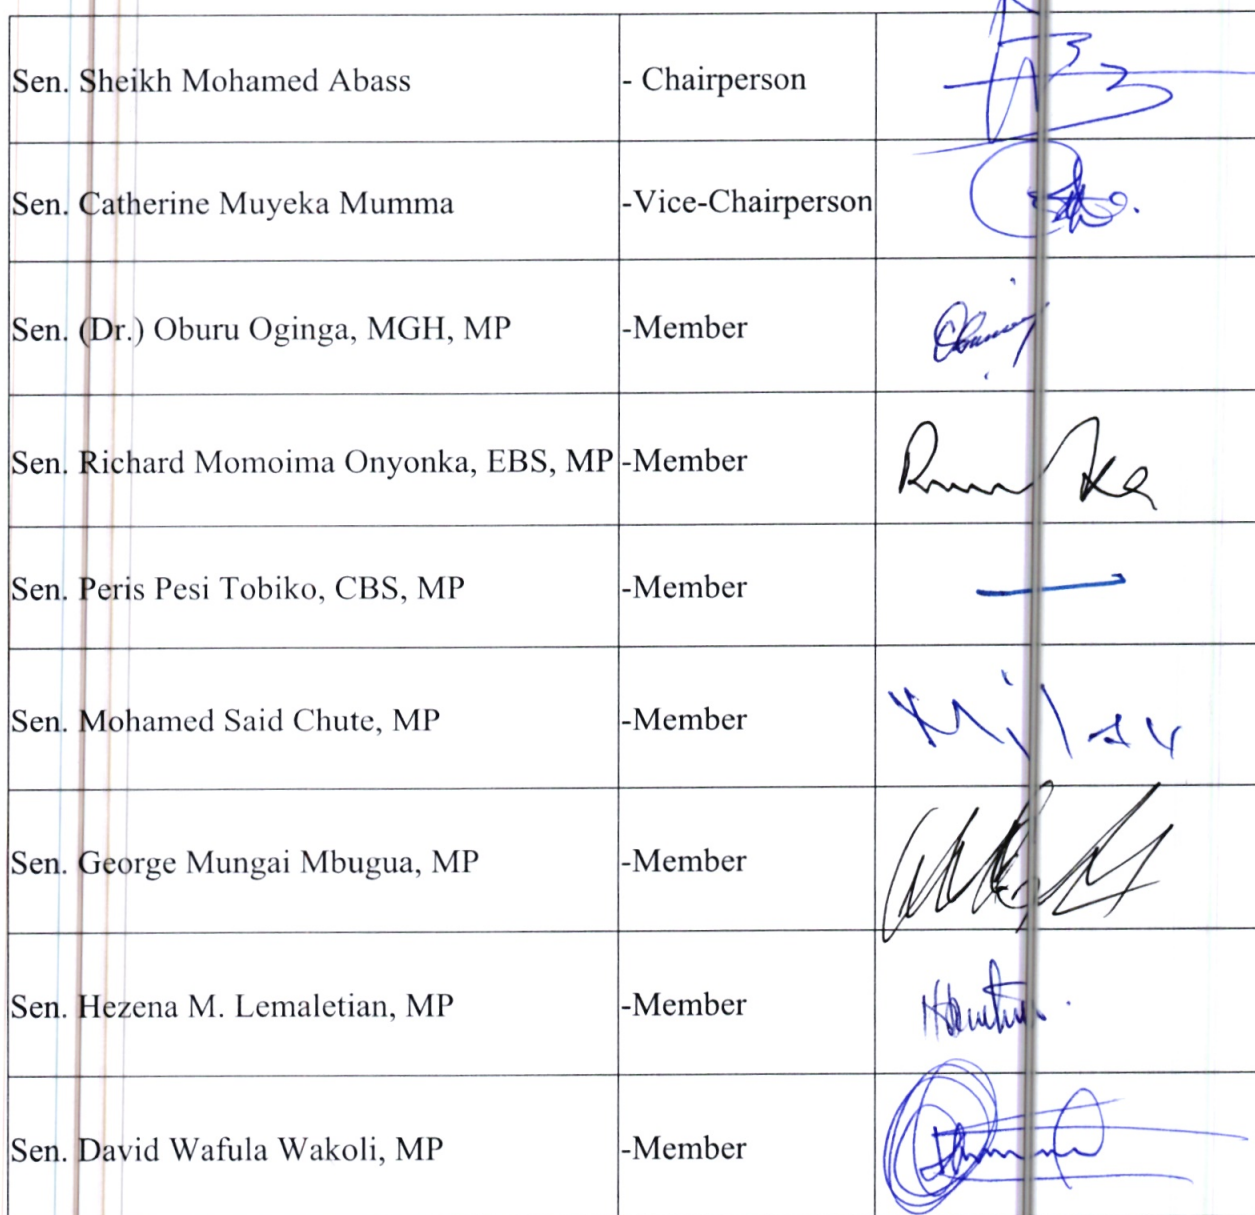 Sen. Sheikh Mohamed Abass - Chairperson
Sen. Catherine Muyeka Mumma -Vice-Chairperson
Sen. (Dr.) Oburu Oginga, MGH, MP -Member
Sen. Richard Momoima Onyonka, EBS, MP -Member
Sen. Peris Pesi Tobiko, CBS, MP -Member
Sen. Mohamed Said Chute, MP -Member
Sen. George Mungai Mbugua, MP -Member
Sen. Hezena M. Lemaletian, MP -Member
Sen. David Wafula Wakoli, MP -Member